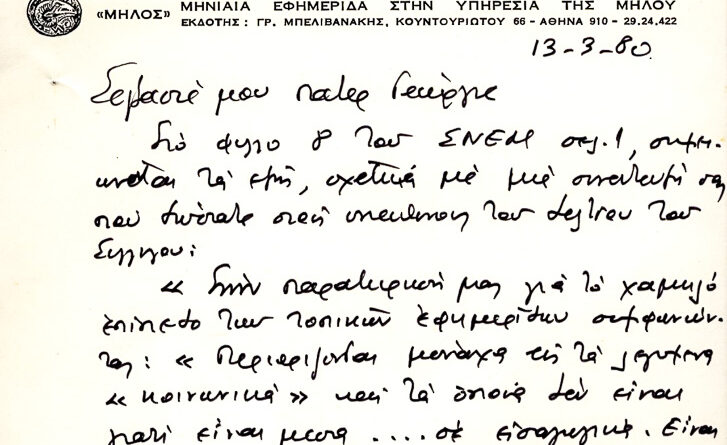 «ΜΗΛΟΣ» ΜΗΝΙΑΙΑ ΕΦΗΜΕΡΙΔΑ ΣΤΗΝ ΥΠΗΡΕΣΙΑ ΤΗΣ ΜΗΛΟΥ
ΕΚΔΟΤΗΣ : ΓΡ. ΜΠΕΛΙΒΑΝΑΚΗΣ, ΚΟΥΝΤΟΥΡΙΩΤΟΥ 66 - ΑΘΗΝΑ 910 - 29.24.422
13-3-80
Σεβαστέ μου πατερ Γεώργιε
Στό φυλο 8 του ΣΝΕΜ σελ. 1, σημει-
ωνεται τά εξής, σχετικά μέ μιά συνέντευξή σας
που δώσατε στον υπευθυνο του Δελτιου του
Συλλγου:
« Στήν παρατηρησή μας γιά τό χαμηλό
επίπεδο των τοπικών εφημερίδων συμφωνών-
τας: « Περιοριζονται μονάχα εις τά λεγομενα
« κοινωνικά » και τά οποια δεν είναι
γιατί είναι μεσα .... σέ εισαγωγικά. Είναι